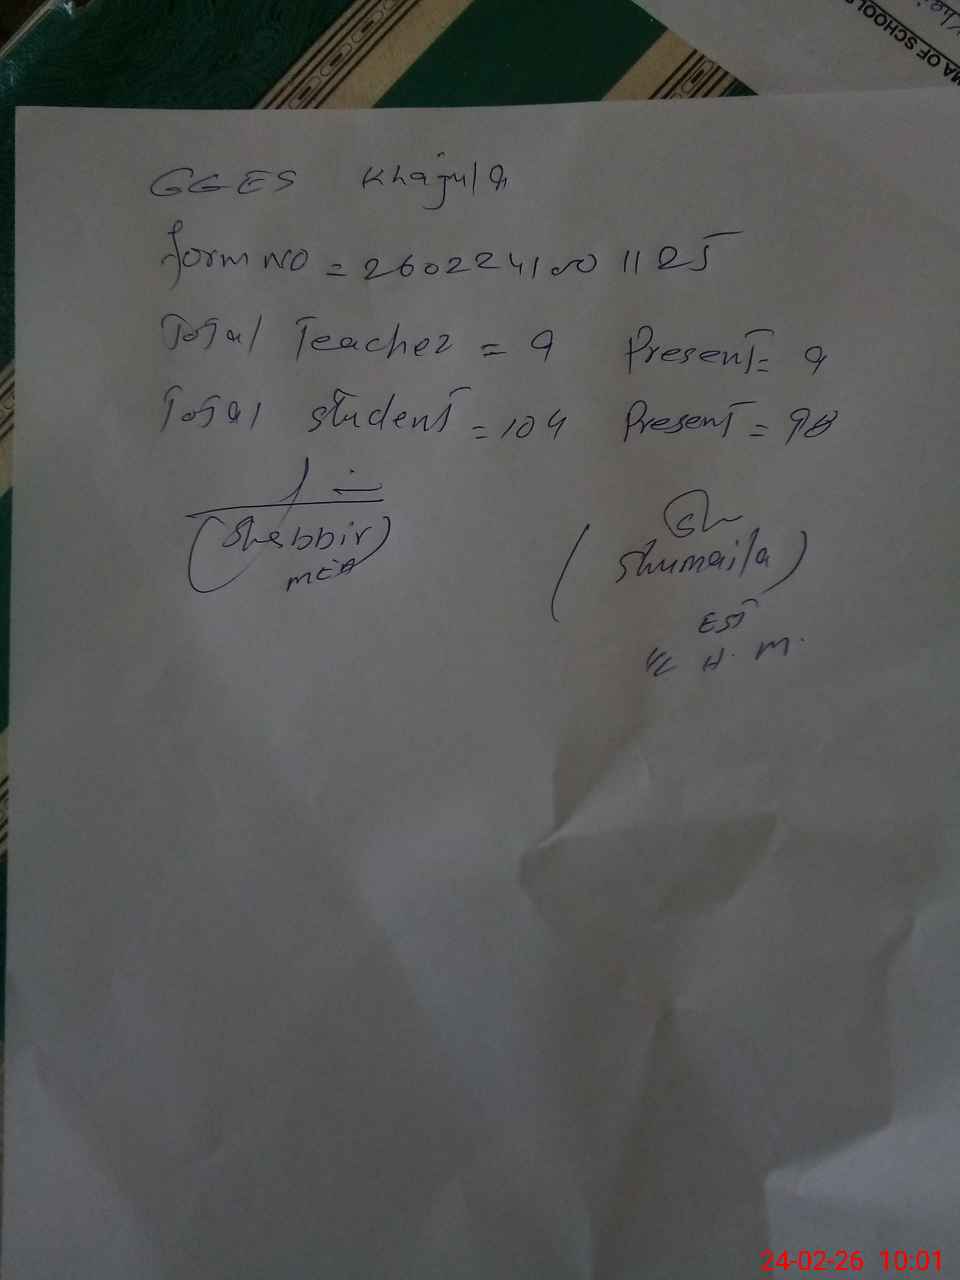 MA OF SCHOOL
GGES Khajula
form no = 2602241001125
Total Teacher = 9 Present = 9
Total student = 104 Present = 98
(Shabbir)
MEA
(Shumaila)
EST
I/C H.M.
24-02-26 10:01